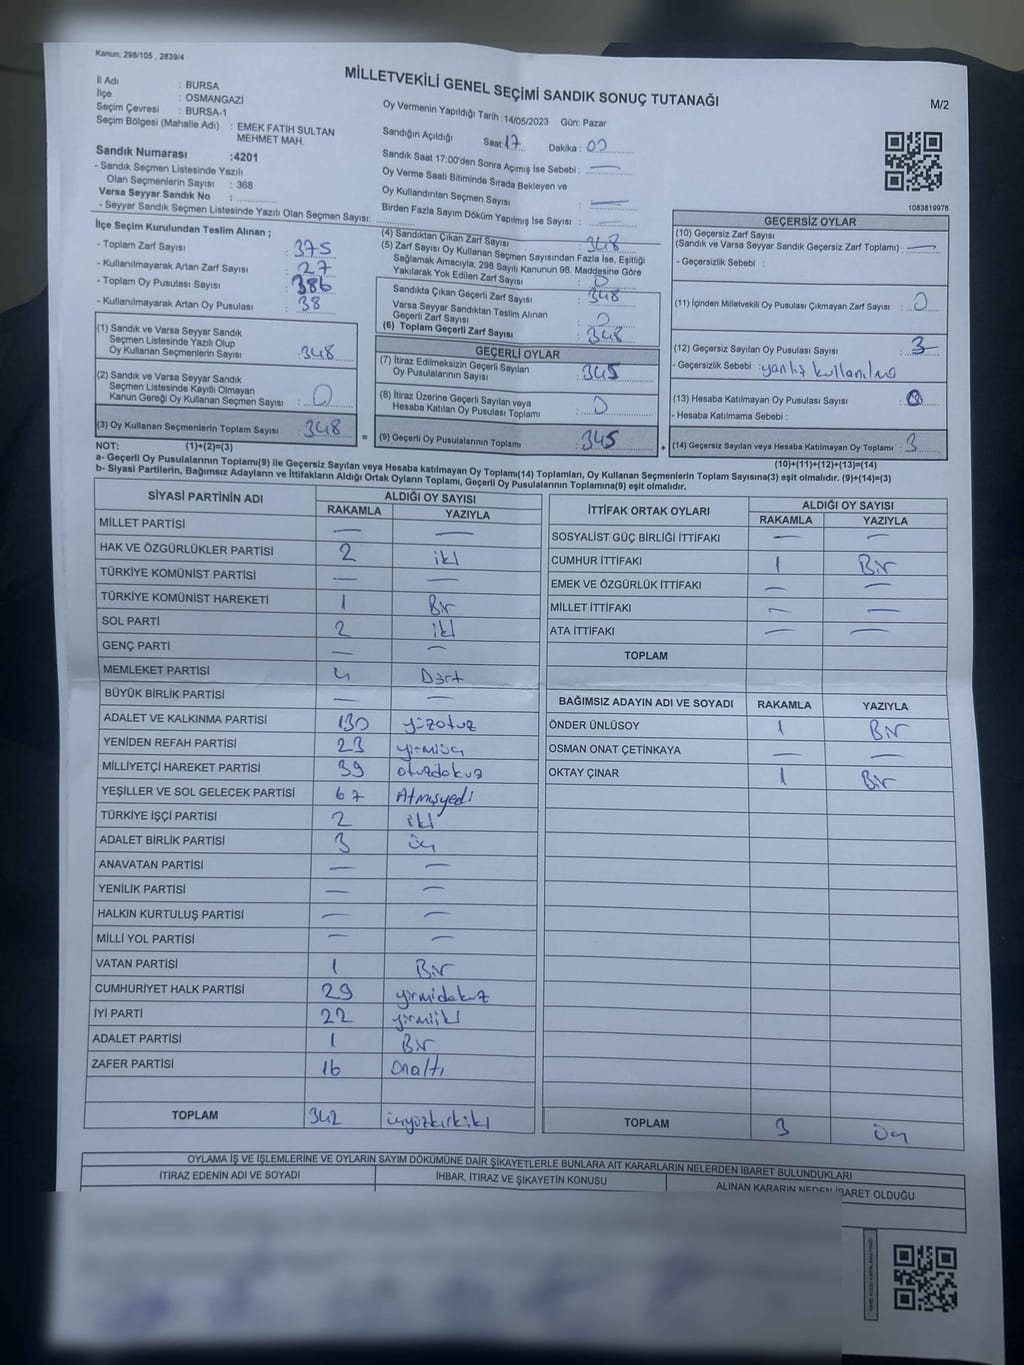 Kanun; 298/105 , 2839/4
MİLLETVEKİLİ GENEL SEÇİMİ SANDIK SONUÇ TUTANAĞI
M/2
İl Adı : BURSA
İlçe : OSMANGAZİ
Seçim Çevresi : BURSA-1
Seçim Bölgesi (Mahalle Adı) : EMEK FATİH SULTAN
MEHMET MAH.
Sandık Numarası :4201
- Sandık Seçmen Listesinde Yazılı
Olan Seçmenlerin Sayısı : 368
Varsa Seyyar Sandık No :
- Seyyar Sandık Seçmen Listesinde Yazılı Olan Seçmen Sayısı:
Oy Vermenin Yapıldığı Tarih :14/05/2023 Gün: Pazar
Sandığın Açıldığı Saat: 17 Dakika : 00
Sandık Saat 17:00'den Sonra Açılmış İse Sebebi : —
Oy Verme Saati Bitiminde Sırada Bekleyen ve
Oy Kullandırılan Seçmen Sayısı : —
Birden Fazla Sayım Döküm Yapılmış İse Sayısı : —
1083819976
İlçe Seçim Kurulundan Teslim Alınan ;
- Toplam Zarf Sayısı : 375
- Kullanılmayarak Artan Zarf Sayısı : 27
- Toplam Oy Pusulası Sayısı : 386
- Kullanılmayarak Artan Oy Pusulası : 38
(1) Sandık ve Varsa Seyyar Sandık
Seçmen Listesinde Yazılı Olup
Oy Kullanan Seçmenlerin Sayısı : 348
(2) Sandık ve Varsa Seyyar Sandık
Seçmen Listesinde Kayıtlı Olmayan
Kanun Gereği Oy Kullanan Seçmen Sayısı : 0
(3) Oy Kullanan Seçmenlerin Toplam Sayısı : 348
(4) Sandıktan Çıkan Zarf Sayısı : 348
(5) Zarf Sayısı Oy Kullanan Seçmen Sayısından Fazla İse, Eşitliği
Sağlamak Amacıyla; 298 Sayılı Kanunun 98. Maddesine Göre
Yakılarak Yok Edilen Zarf Sayısı : 0
Sandıkta Çıkan Geçerli Zarf Sayısı : 348
Varsa Seyyar Sandıktan Teslim Alınan
Geçerli Zarf Sayısı : 0
(6) Toplam Geçerli Zarf Sayısı : 348
GEÇERLİ OYLAR
(7) İtiraz Edilmeksizin Geçerli Sayılan
Oy Pusulalarının Sayısı : 345
(8) İtiraz Üzerine Geçerli Sayılan veya
Hesaba Katılan Oy Pusulası Toplamı : 0
= (9) Geçerli Oy Pusulalarının Toplamı : 345
GEÇERSİZ OYLAR
(10) Geçersiz Zarf Sayısı
(Sandık ve Varsa Seyyar Sandık Geçersiz Zarf Toplamı) : —
- Geçersizlik Sebebi :
(11) İçinden Milletvekili Oy Pusulası Çıkmayan Zarf Sayısı : 0
(12) Geçersiz Sayılan Oy Pusulası Sayısı : 3
- Geçersizlik Sebebi : yanlış kullanılma
(13) Hesaba Katılmayan Oy Pusulası Sayısı : 0
- Hesaba Katılmama Sebebi :
+ (14) Geçersiz Sayılan veya Hesaba Katılmayan Oy Toplamı : 3
NOT: (1)+(2)=(3)
(10)+(11)+(12)+(13)=(14)
a- Geçerli Oy Pusulalarının Toplamı(9) ile Geçersiz Sayılan veya Hesaba katılmayan Oy Toplamı(14) Toplamları, Oy Kullanan Seçmenlerin Toplam Sayısına(3) eşit olmalıdır. (9)+(14)=(3)
b- Siyasi Partilerin, Bağımsız Adayların ve İttifakların Aldığı Ortak Oyların Toplamı, Geçerli Oy Pusulalarının Toplamına(9) eşit olmalıdır.
SİYASİ PARTİNİN ADI ALDIĞI OY SAYISI
RAKAMLA YAZIYLA
MİLLET PARTİSİ — —
HAK VE ÖZGÜRLÜKLER PARTİSİ 2 iki
TÜRKİYE KOMÜNİST PARTİSİ — —
TÜRKİYE KOMÜNİST HAREKETİ 1 Bir
SOL PARTİ 2 iki
GENÇ PARTİ — —
MEMLEKET PARTİSİ 4 Dört
BÜYÜK BİRLİK PARTİSİ — —
ADALET VE KALKINMA PARTİSİ 130 yüzotuz
YENİDEN REFAH PARTİSİ 23 yirmiüç
MİLLİYETÇİ HAREKET PARTİSİ 39 otuzdokuz
YEŞİLLER VE SOL GELECEK PARTİSİ 67 Atmışyedi
TÜRKİYE İŞÇİ PARTİSİ 2 iki
ADALET BİRLİK PARTİSİ 3 üç
ANAVATAN PARTİSİ — —
YENİLİK PARTİSİ — —
HALKIN KURTULUŞ PARTİSİ — —
MİLLİ YOL PARTİSİ — —
VATAN PARTİSİ 1 Bir
CUMHURİYET HALK PARTİSİ 29 yirmidokuz
İYİ PARTİ 22 yirmiiki
ADALET PARTİSİ 1 Bir
ZAFER PARTİSİ 16 onaltı
TOPLAM 342 üçyüzkırkiki
İTTİFAK ORTAK OYLARI ALDIĞI OY SAYISI
RAKAMLA YAZIYLA
SOSYALİST GÜÇ BİRLİĞİ İTTİFAKI — —
CUMHUR İTTİFAKI 1 Bir
EMEK VE ÖZGÜRLÜK İTTİFAKI — —
MİLLET İTTİFAKI — —
ATA İTTİFAKI — —
TOPLAM
BAĞIMSIZ ADAYIN ADI VE SOYADI RAKAMLA YAZIYLA
ÖNDER ÜNLÜSOY 1 Bir
OSMAN ONAT ÇETİNKAYA — —
OKTAY ÇINAR 1 Bir
TOPLAM 3 üç
OYLAMA İŞ VE İŞLEMLERİNE VE OYLARIN SAYIM DÖKÜMÜNE DAİR ŞİKAYETLERLE BUNLARA AİT KARARLARIN NELERDEN İBARET BULUNDUKLARI
İTİRAZ EDENİN ADI VE SOYADI İHBAR, İTİRAZ VE ŞİKAYETİN KONUSU ALINAN KARARIN NEDEN İBARET OLDUĞU